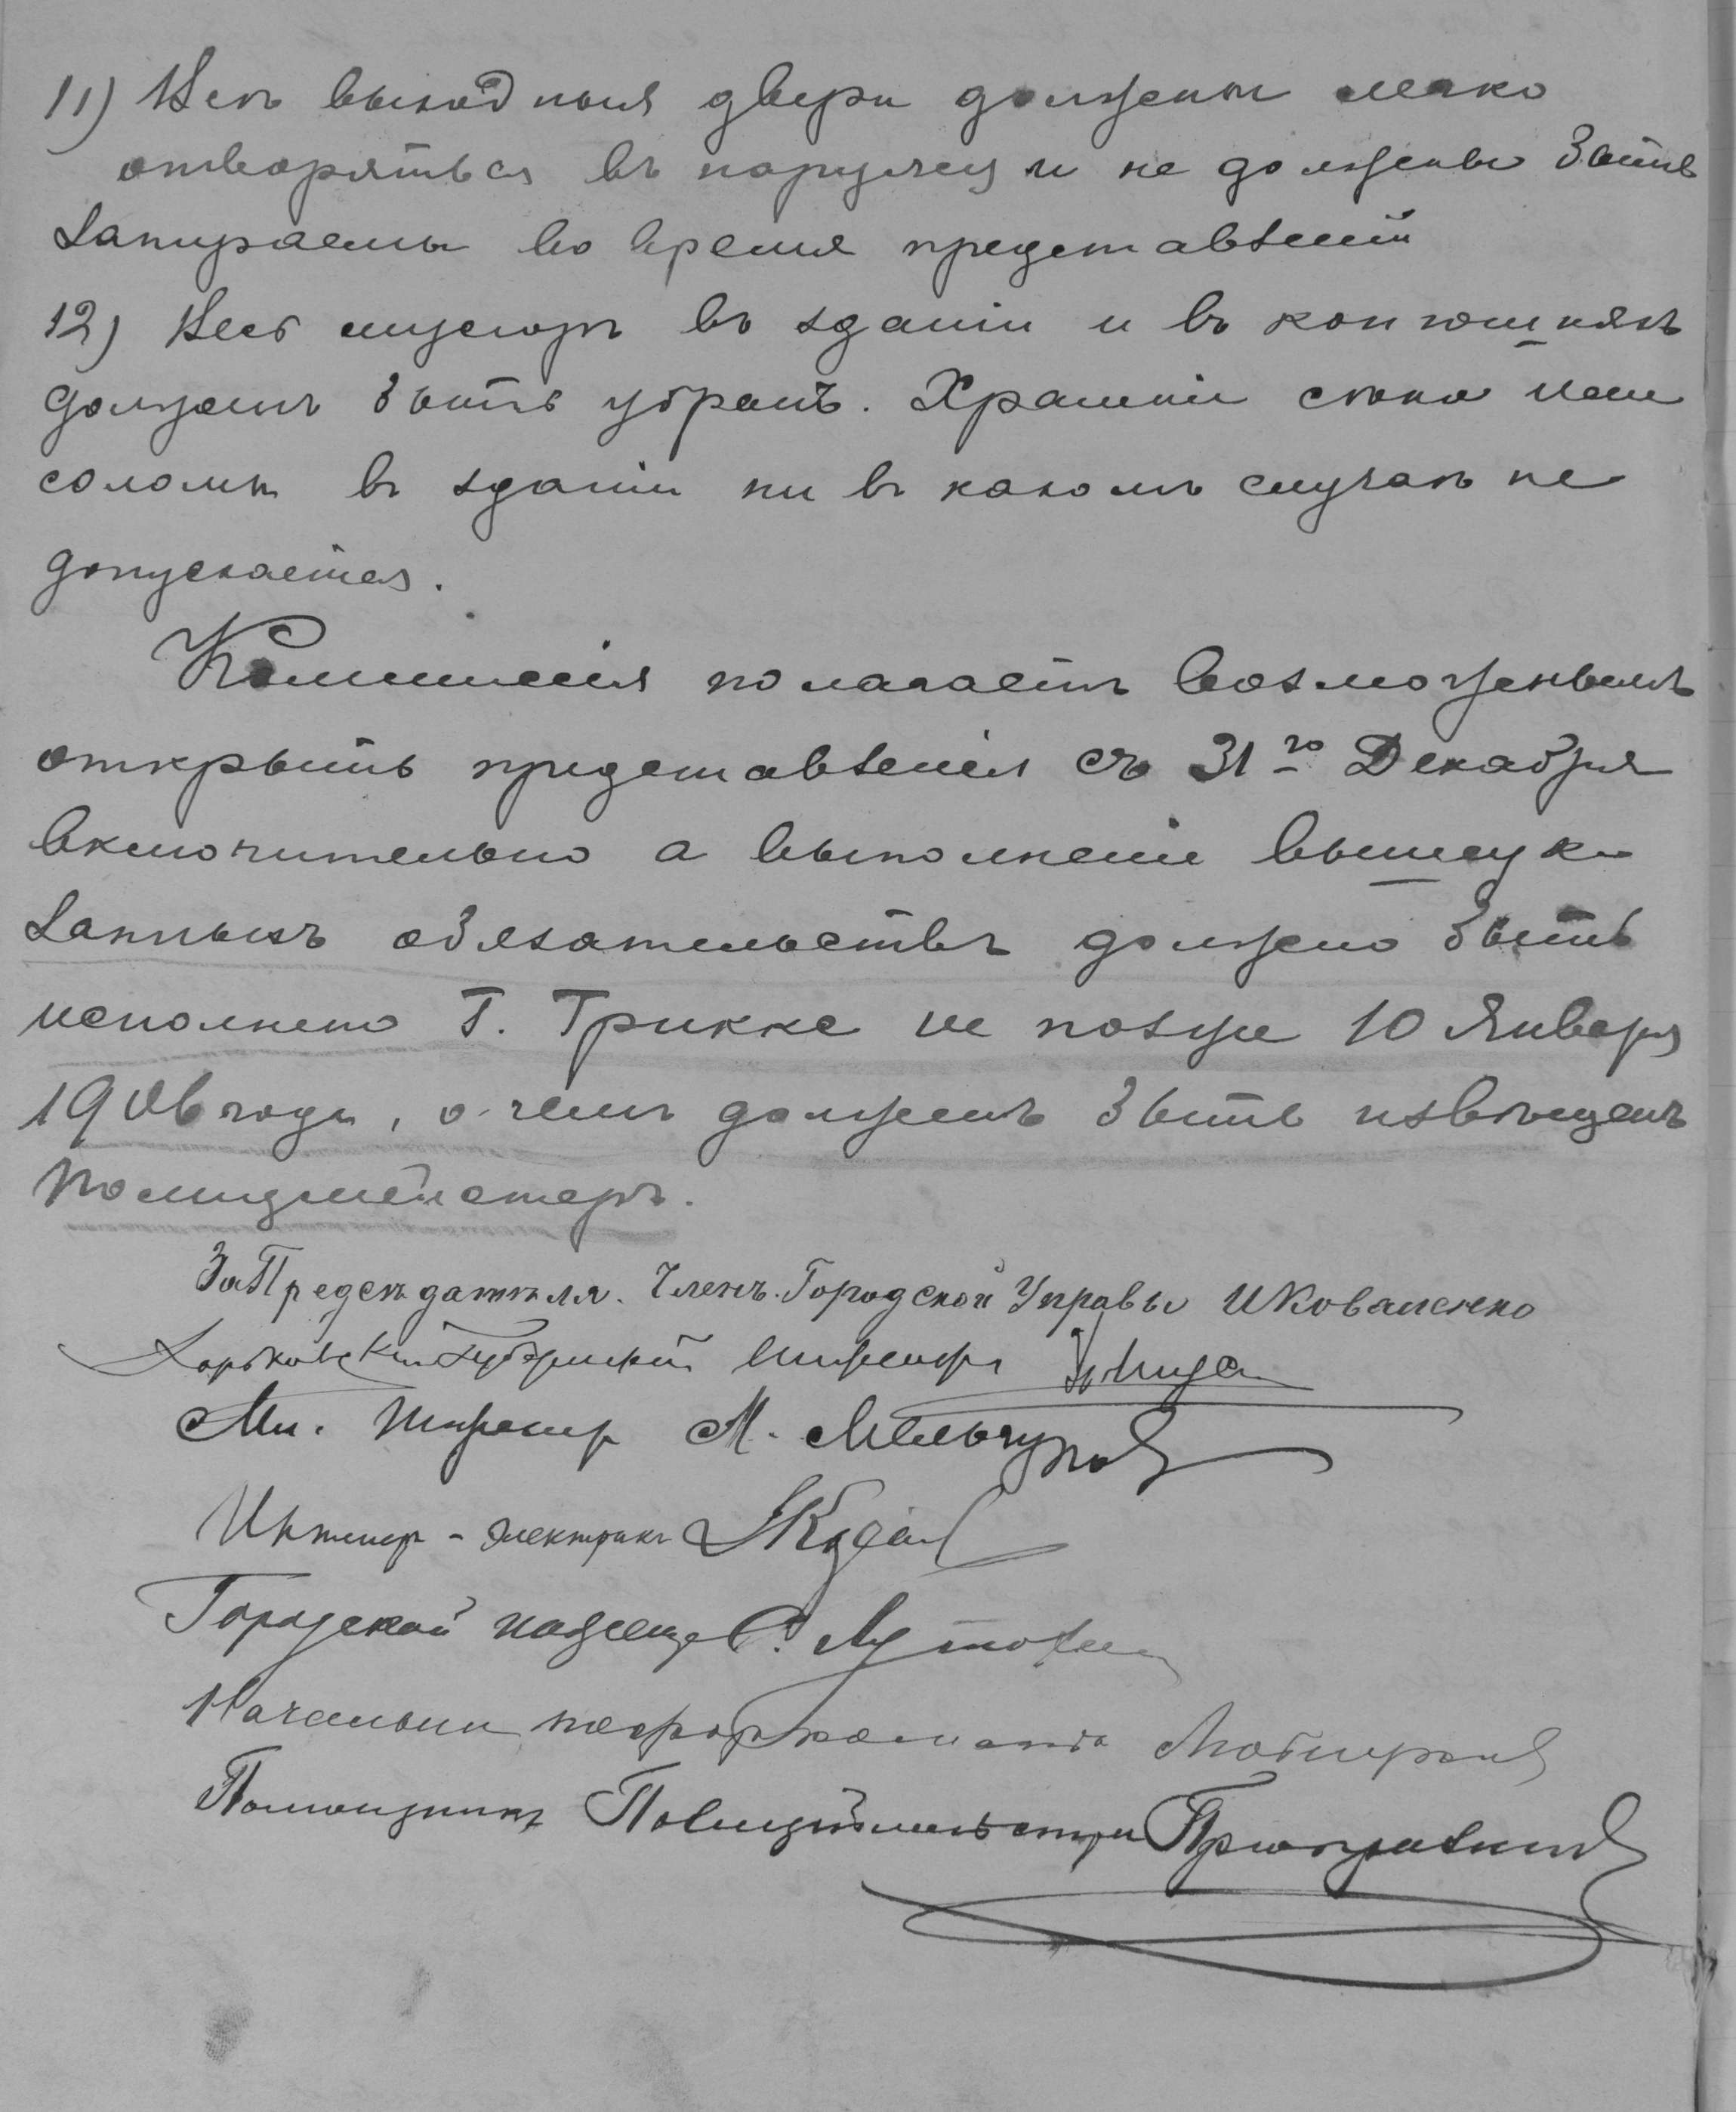 11) Всѣ выходныя двери должны легко
отворяться въ наружу и не должны быть
запираемы во время представленій
12) Весь мусоръ въ зданіи и въ конюшняхъ
долженъ быть убранъ. Храненіе сѣна или
соломы въ зданіи ни въ какомъ случаѣ не
допускается.
Коммиссія полагаетъ возможнымъ
открыть представленія съ 31го Декабря
включительно а выполненіе вышеука
занныхъ обязательствъ должно быть
исполнено Г. Трикке не позже 10 Января
1906 года, о чемъ долженъ быть извѣщенъ
Полицмейстеръ.
За Предсѣдателя. Членъ Городской Управы И Коваленко
Харьковскій Губернскій Инженеръ
Мл. Инженер М. Мельчуков
Инженер - электрикъ
Городской
Начальник команды
Помощникъ Полицмейстера